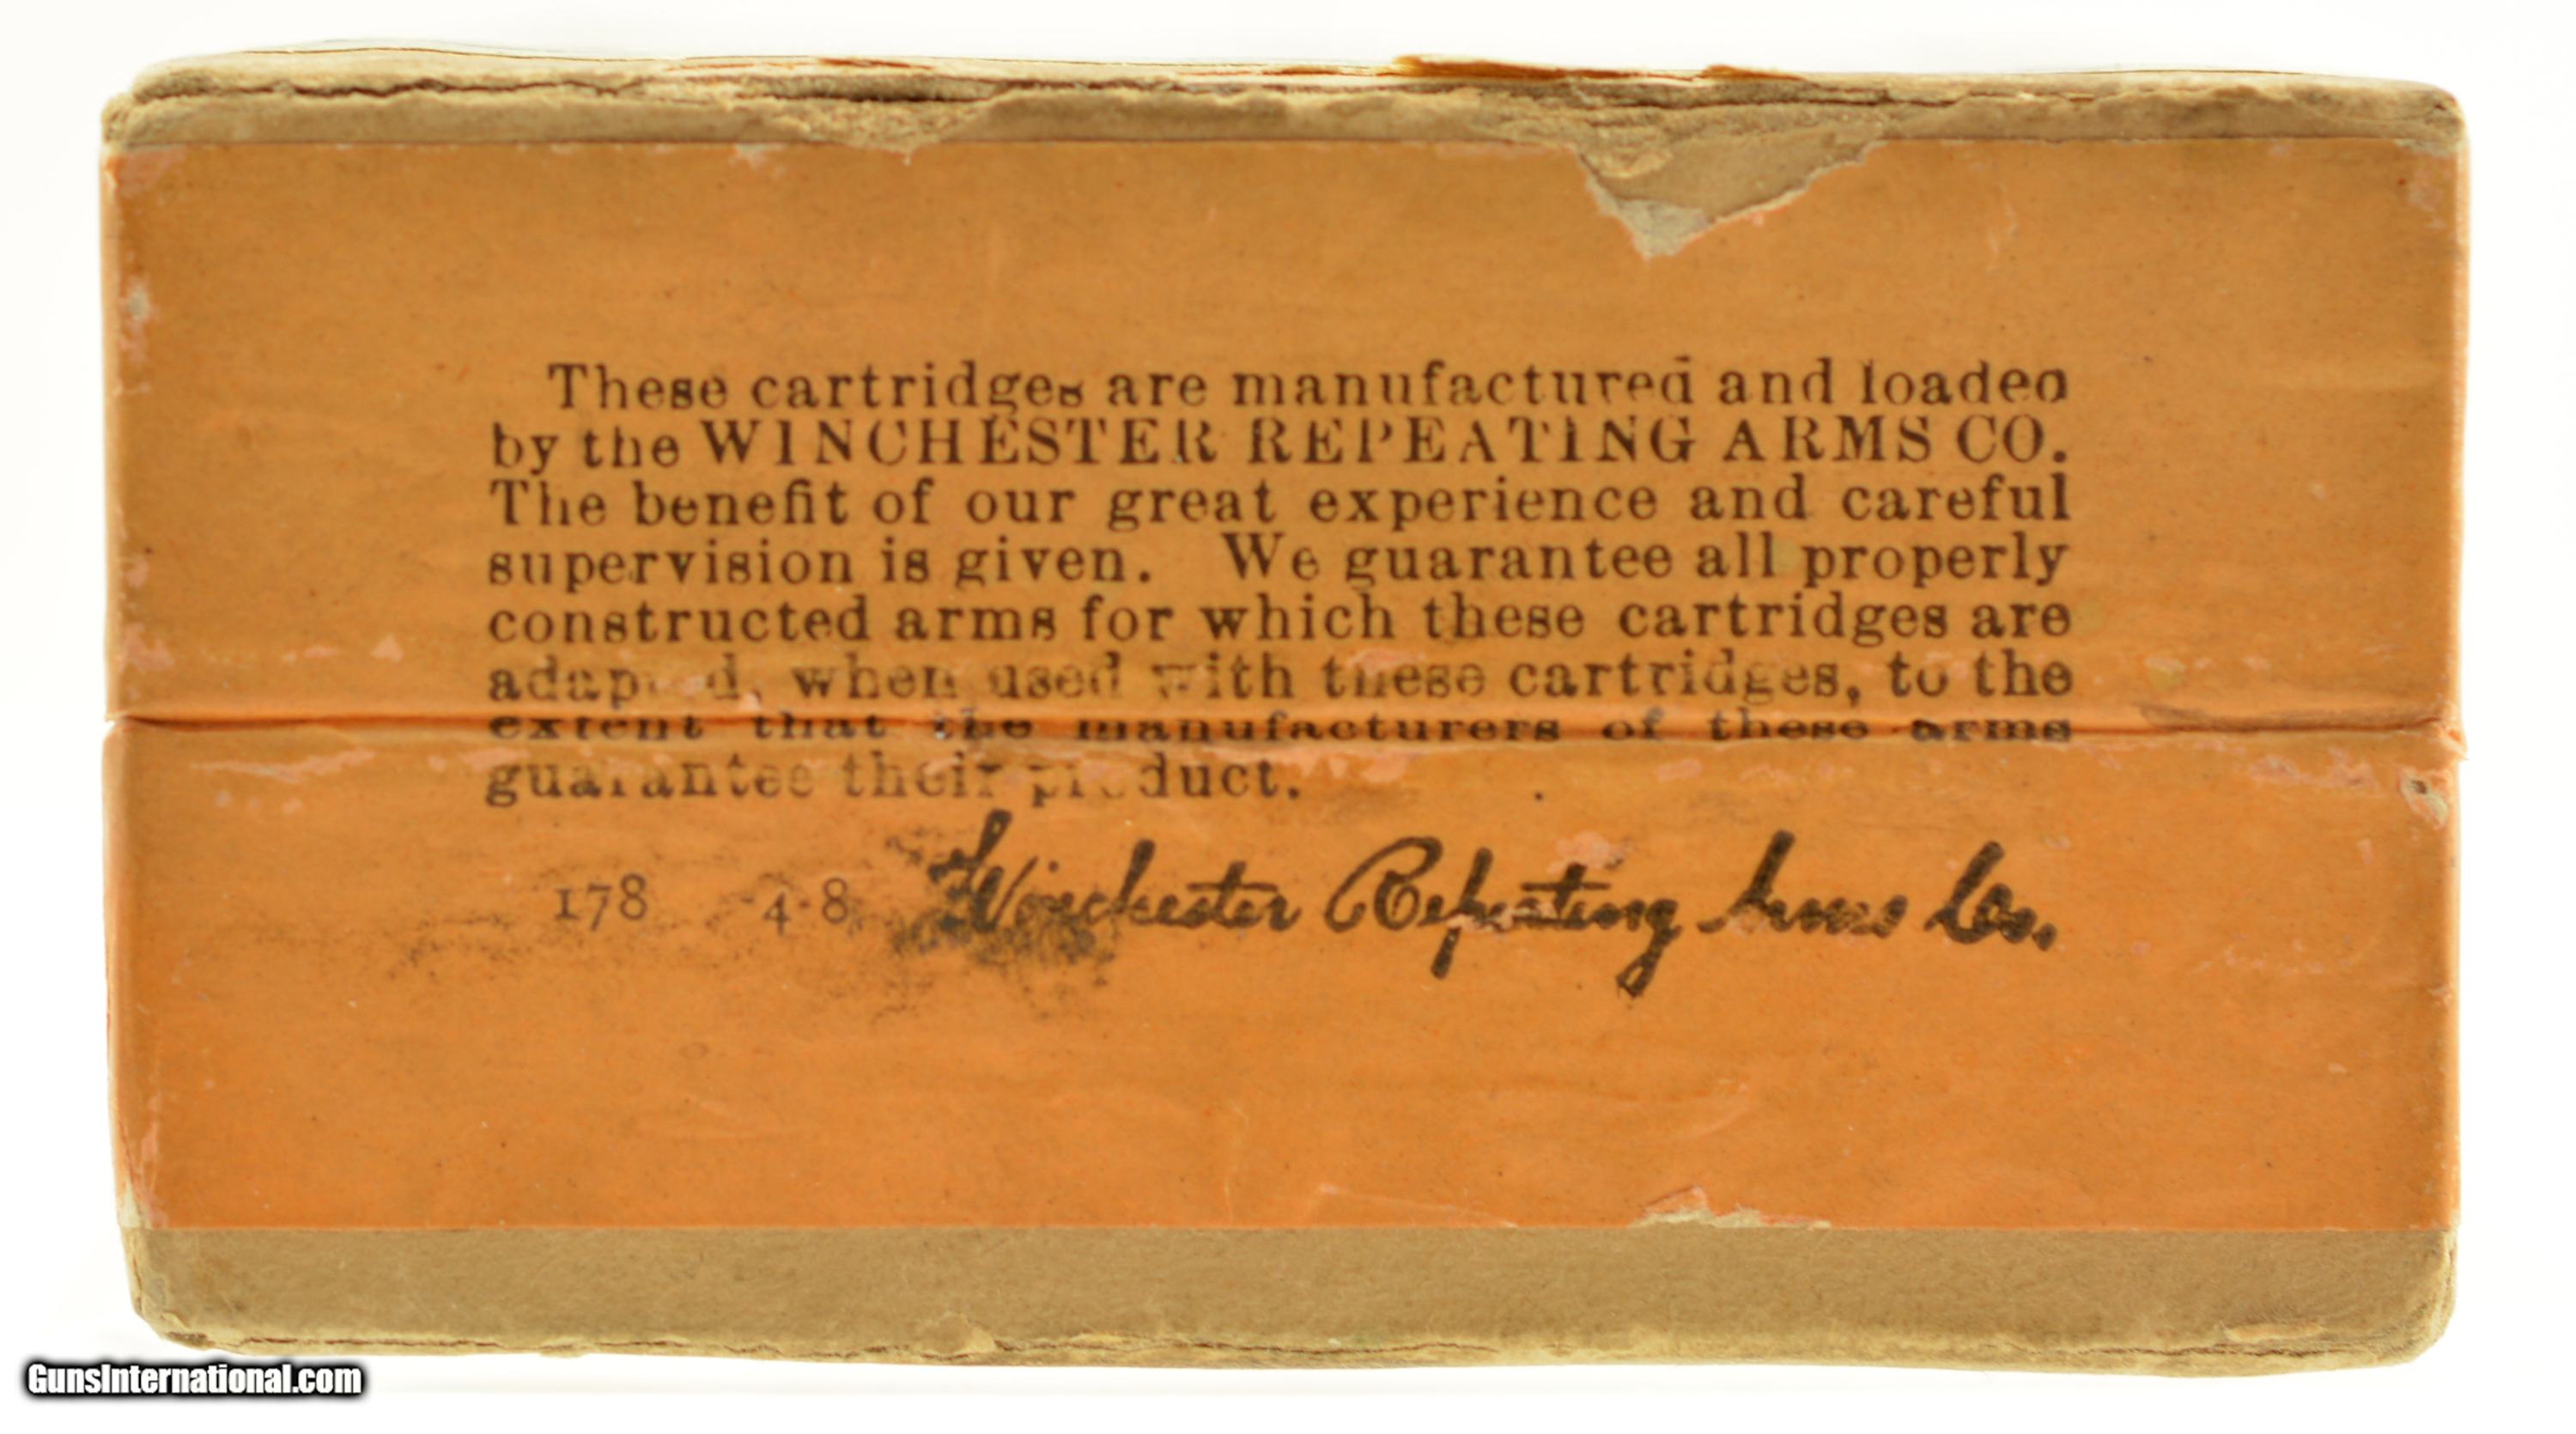 These cartridges are manufactured and loaded
by the WINCHESTER REPEATING ARMS CO.
The benefit of our great experience and careful
supervision is given. We guarantee all properly
constructed arms for which these cartridges are
adapted, when used with these cartridges, to the
extent that the manufacturers of these arms
guarantee their product.
178 4-8 Winchester Repeating Arms Co.
GunsInternational.com